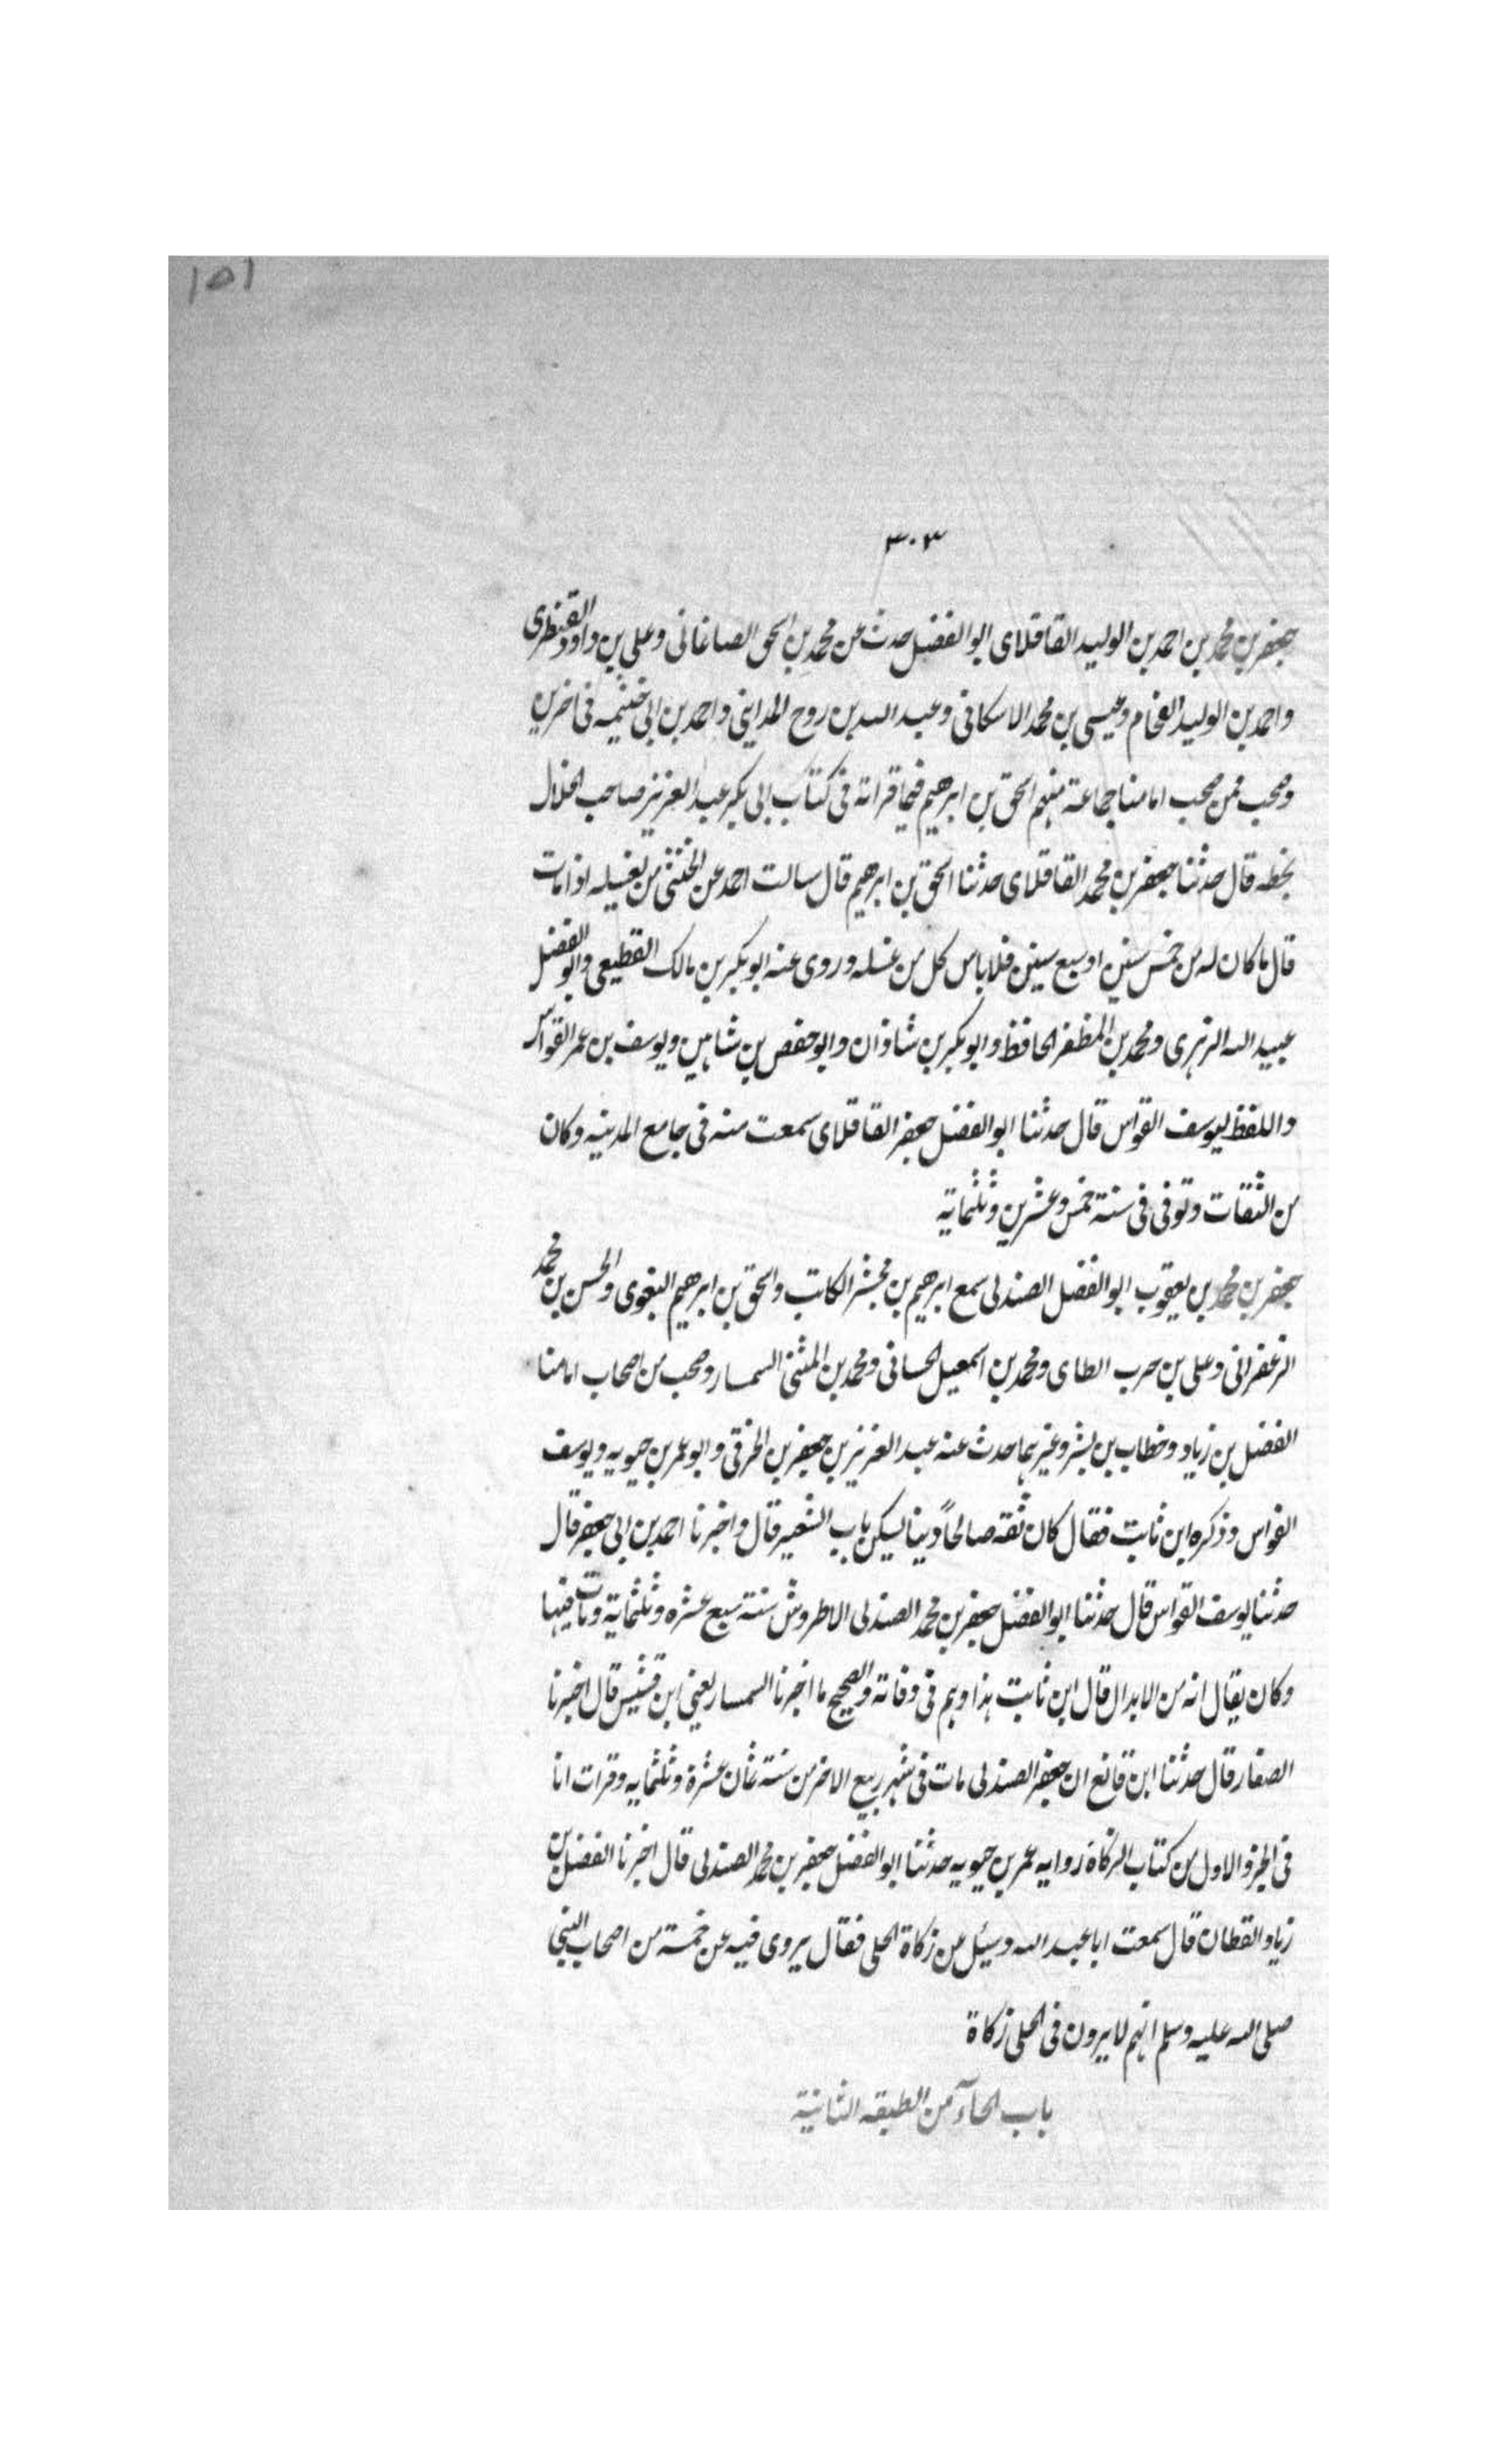 ١٥١
٣٠٣
جعفر بن محمد بن احمد بن الوليد القافلاى ابو الفضل حدث عن محمد بن اسحق الصاغانى وعلى بن داود القنطرى
واحمد بن الوليد الفحام وعيسى بن محمد الاسكافى وعبد الله بن روح المداينى واحمد بن ابى خيثمه فى اخرين
وصحب ممن صحب امامنا جماعة منهم اسحق بن ابرهيم فيما قراته فى كتاب ابى بكر عبد العزيز صاحب الخلال
بخطه قال حدثنا جعفر بن محمد القافلاى حدثنا اسحق بن ابرهيم قال سالت احمد عن الخنثى من يغسله اذا مات
قال ما كان له من خمس سنين او سبع سنين فلا باس كل من غسله وروى عنه ابو بكر بن مالك القطيعى وابو الفضل
عبيد الله الزهرى ومحمد بن المظفر الحافظ وابو بكر بن شاذان وابو حفص بن شاهين ويوسف بن عمر القواس
واللفظ ليوسف القواس قال حدثنا ابو الفضل جعفر القافلاى سمعت منه فى جامع المدينه وكان
من الثقات وتوفى فى سنة خمس وعشرين وثلثماية
جعفر بن محمد بن يعقوب ابو الفضل الصندلى سمع ابرهيم بن مجشر الكاتب واسحق بن ابرهيم البغوى والحسن بن محمد
الزعفرانى وعلى بن حرب الطاى ومحمد بن اسمعيل الحسانى ومحمد بن المثنى السمسار وصحب من اصحاب امامنا
الفضل بن زياد وخطاب بن بشر وغيرهما حدث عنه عبد العزيز بن جعفر بن الخرقى وابو عمر بن حيويه ويوسف
القواس وذكره ابن ثابت فقال كان ثقه صالحاً دينا يسكن باب الشعير قال واخبرنا احمد بن ابى جعفر قال
حدثنا يوسف القواس قال حدثنا ابو الفضل جعفر بن محمد الصندلى الاطروش سنة سبع عشره وثلثماية ومات فيها
وكان يقال انه من الابدال قال ابن ثابت هذا وهم فى وفاته والصحيح ما اخبرنا السمسار يعنى ابن قشيش قال اخبرنا
الصفار قال حدثنا ابن قانع ان جعفر الصندلى مات فى شهر ربيع الاخر من سنة ثمان عشرة وثلثمايه وقرات انا
فى الجزو الاول من كتاب الزكاة روايه عمر بن حيويه حدثنا ابو الفضل جعفر بن محمد الصندلى قال اخبرنا الفضل بن
زياد القطان قال سمعت ابا عبد الله وسئل عن زكاة الحلى فقال يروى فيه عن خمسة من اصحاب النبى
صلى الله عليه وسلم انهم لا يرون فى الحلى زكاة
باب الحآء من الطبقه الثانية